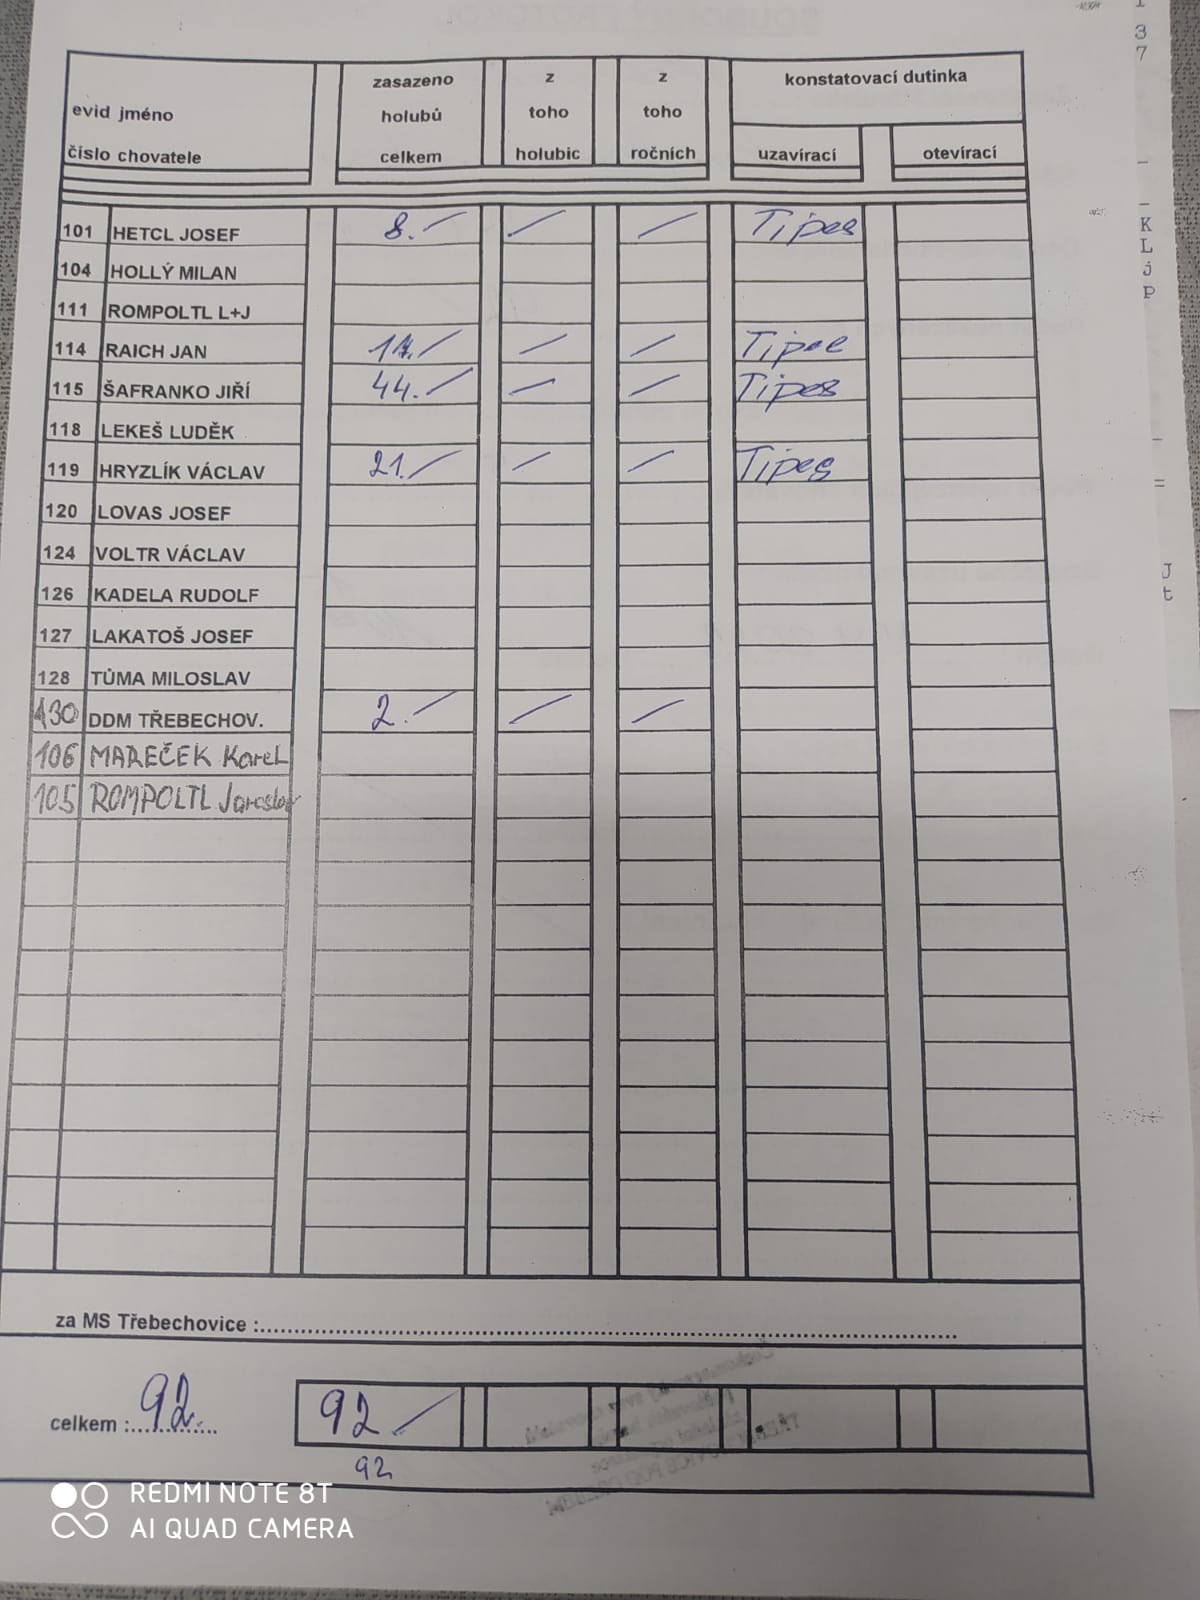 evid jméno
číslo chovatele
zasazeno
holubů
celkem
z
toho
holubic
z
toho
ročních
konstatovací dutinka
uzavírací
otevírací
101 HETCL JOSEF 8.– Tipes
104 HOLLÝ MILAN
111 ROMPOLTL L+J
114 RAICH JAN 17.– Tipes
115 ŠAFRANKO JIŘÍ 44.– Tipes
118 LEKEŠ LUDĚK
119 HRYZLÍK VÁCLAV 21.– Tipes
120 LOVAS JOSEF
124 VOLTR VÁCLAV
126 KADELA RUDOLF
127 LAKATOŠ JOSEF
128 TŮMA MILOSLAV
130 DDM TŘEBECHOV. 2.–
106 MAREČEK Karel
105 ROMPOLTL Jaroslav
za MS Třebechovice :
celkem : 92. 92
92
REDMI NOTE 8T
AI QUAD CAMERA
1
3
7
K
L
j
p
J
t